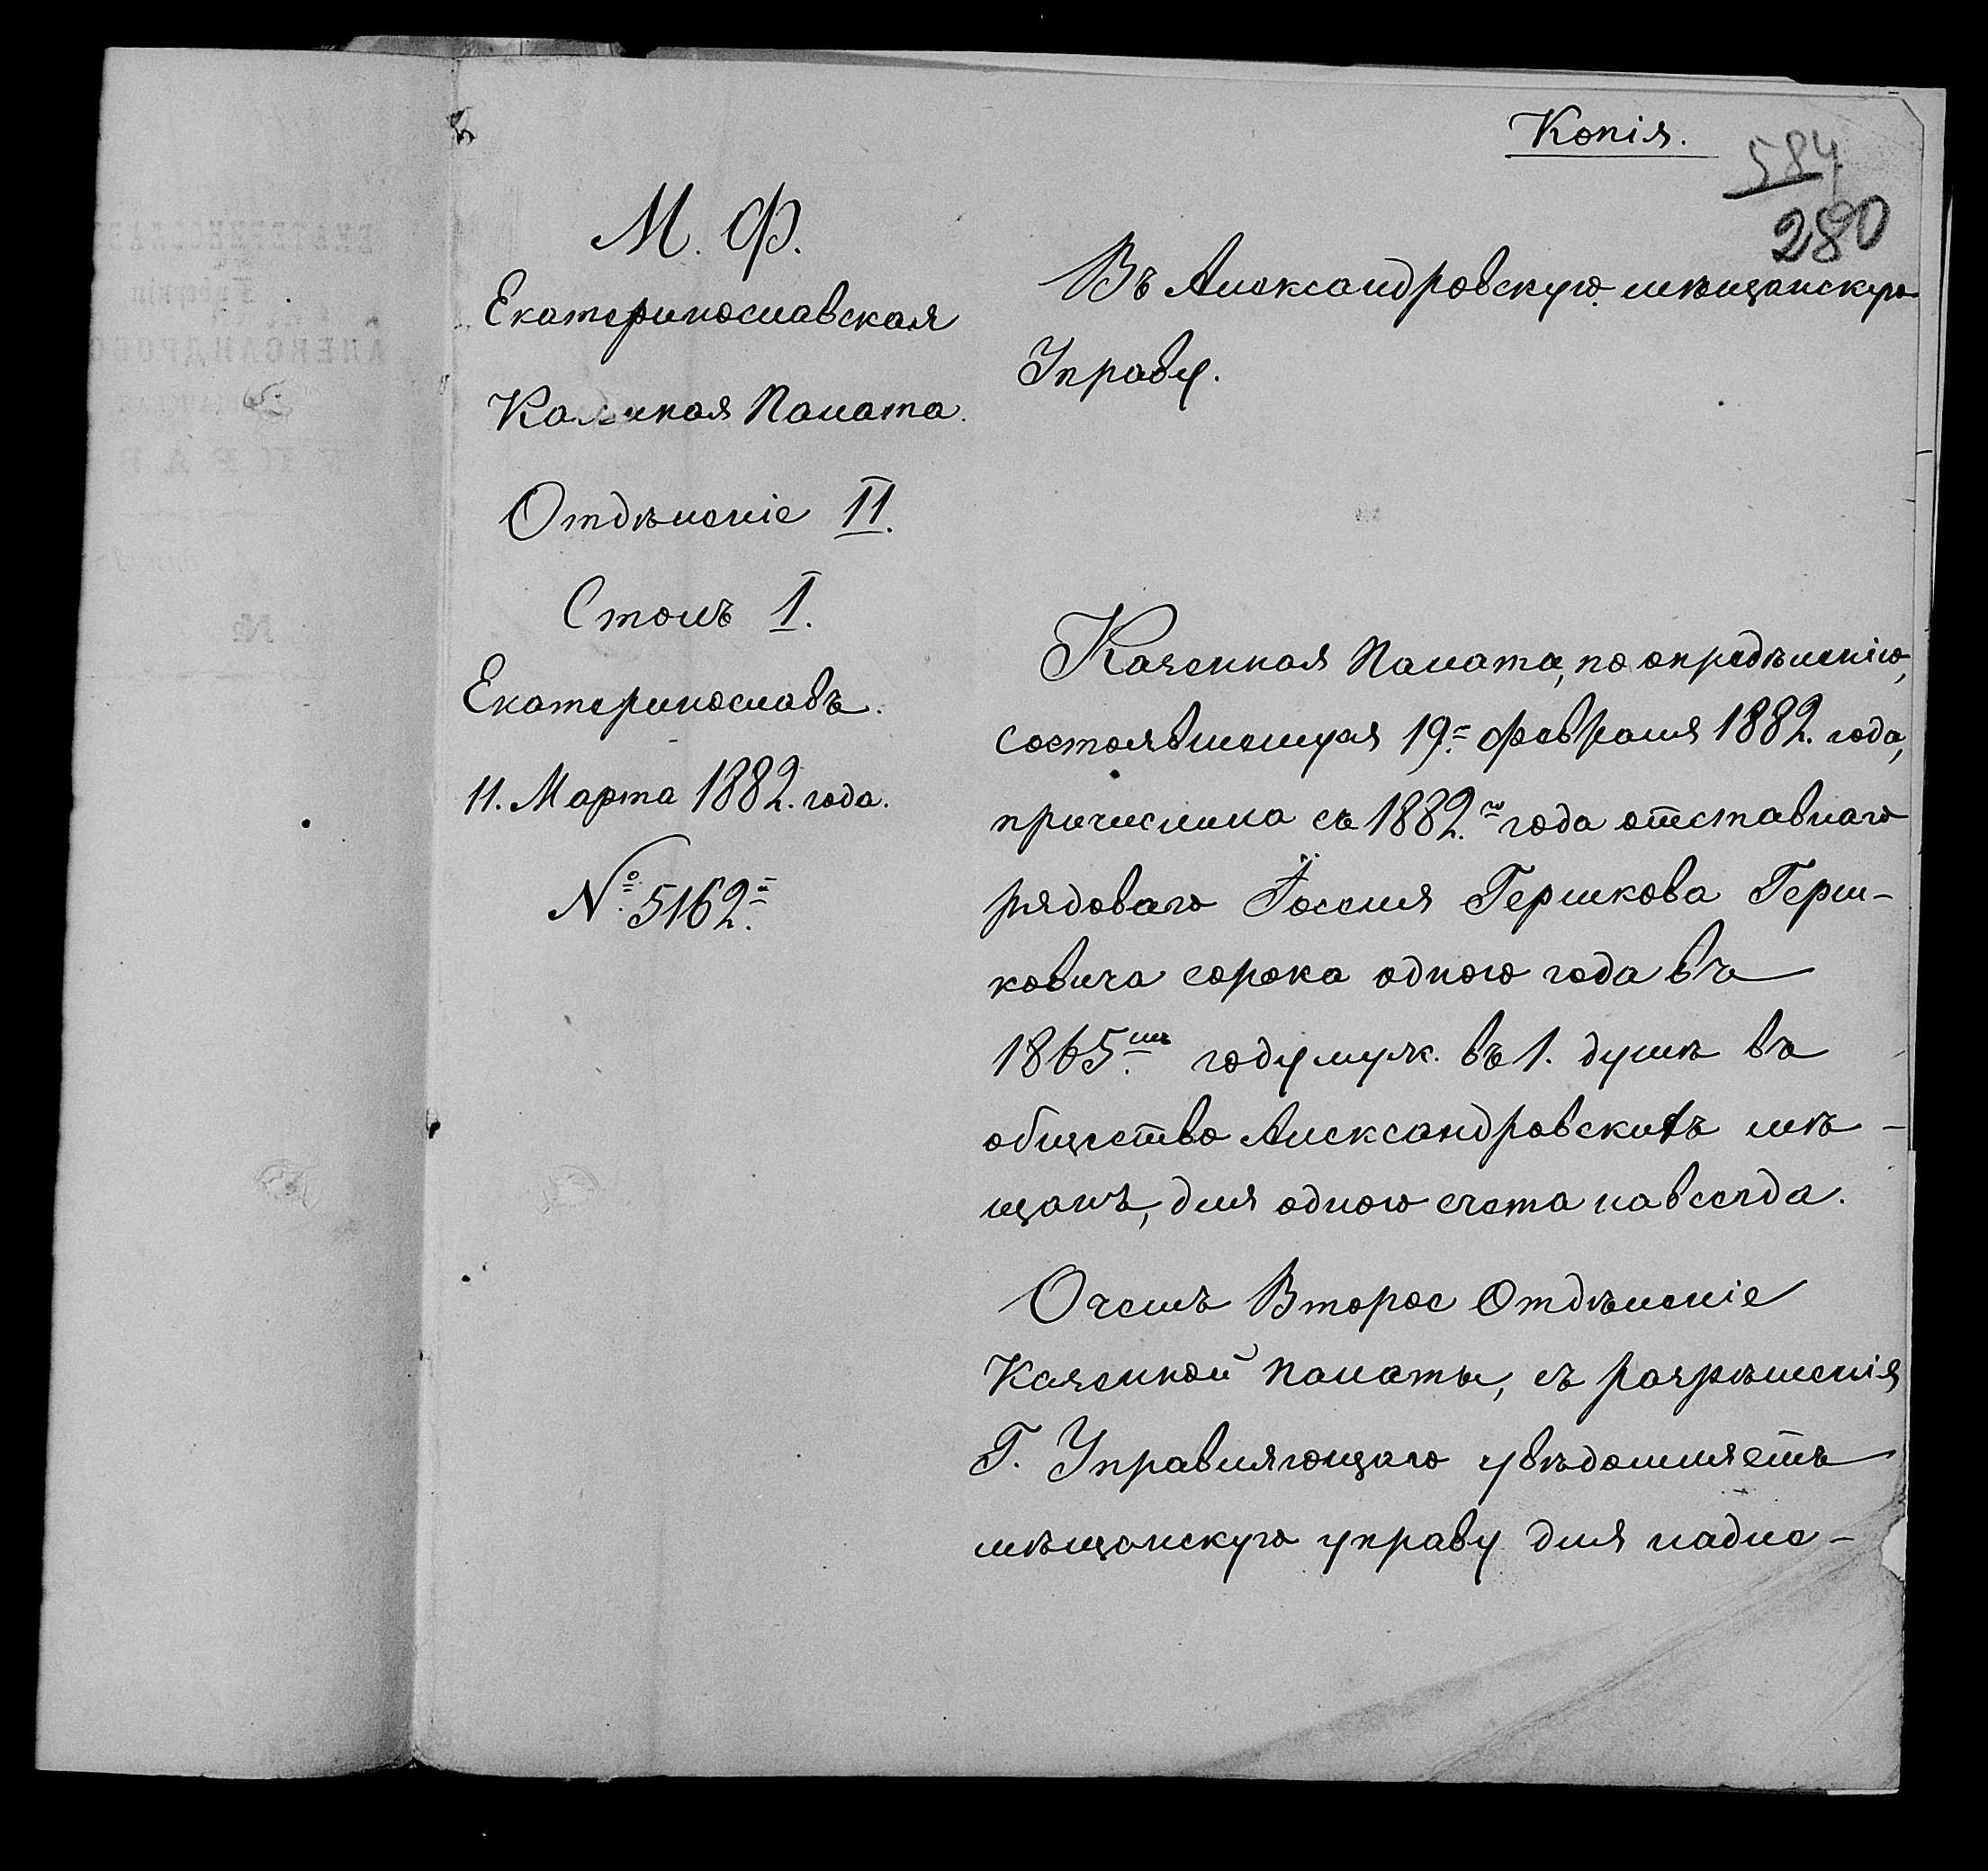 Копія.
584
280
М. Ф.
Екатеринославская
Казенная Палата.
Отдѣленіе II.
Столъ I.
Екатеринославъ.
11. Марта 1882. года.
№ 5162.й
Въ Александровскую мѣщанскую
Управу.
Казенная Палата, по опредѣленію,
состоявшемуся 19.= февраля 1882. года,
причислила съ 1882.го года отставнаго
рядоваго Іосселя Гершкова Герш-
ковича сорока одного года въ
1865.мъ году муж. въ 1. душѣ въ
общество Александровскихъ мѣ-
щанъ, для одного счета навсегда.
О чемъ Второе Отдѣленіе
Казенной Палаты, съ разрѣшенія
Г. Управляющаго увѣдомляетъ
мѣщанскую управу для надле-